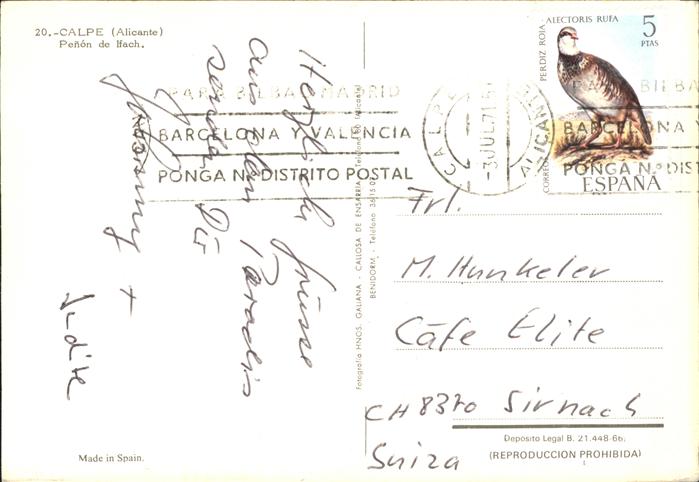 20.-CALPE (Alicante)
Peñón de Ifach.
Herzliche Grüsse
aus dem Paradis
senden Dir
Johnny +
Judite
Made in Spain.
Fotografía HNOS. GALIANA - CALLOSA DE ENSARRIA - Teléfono 60 (Alicante)
BENIDORM - Teléfono 36 15 07
PARA BILBAO MADRID
BARCELONA Y VALENCIA
PONGA N.º DISTRITO POSTAL
CALPE
-3 JUL 71
ALICANTE
PERDIZ ROJA
ALECTORIS RUFA
5
PTAS
CORREOS
ESPAÑA
PARA BILBA
BARCELONA Y
PONGA N.º DIST
Frl.
M. Hunkeler
Café Elite
CH 8370 Sirnach
Suiza
Depósito Legal B. 21.448-66.
(REPRODUCCION PROHIBIDA)